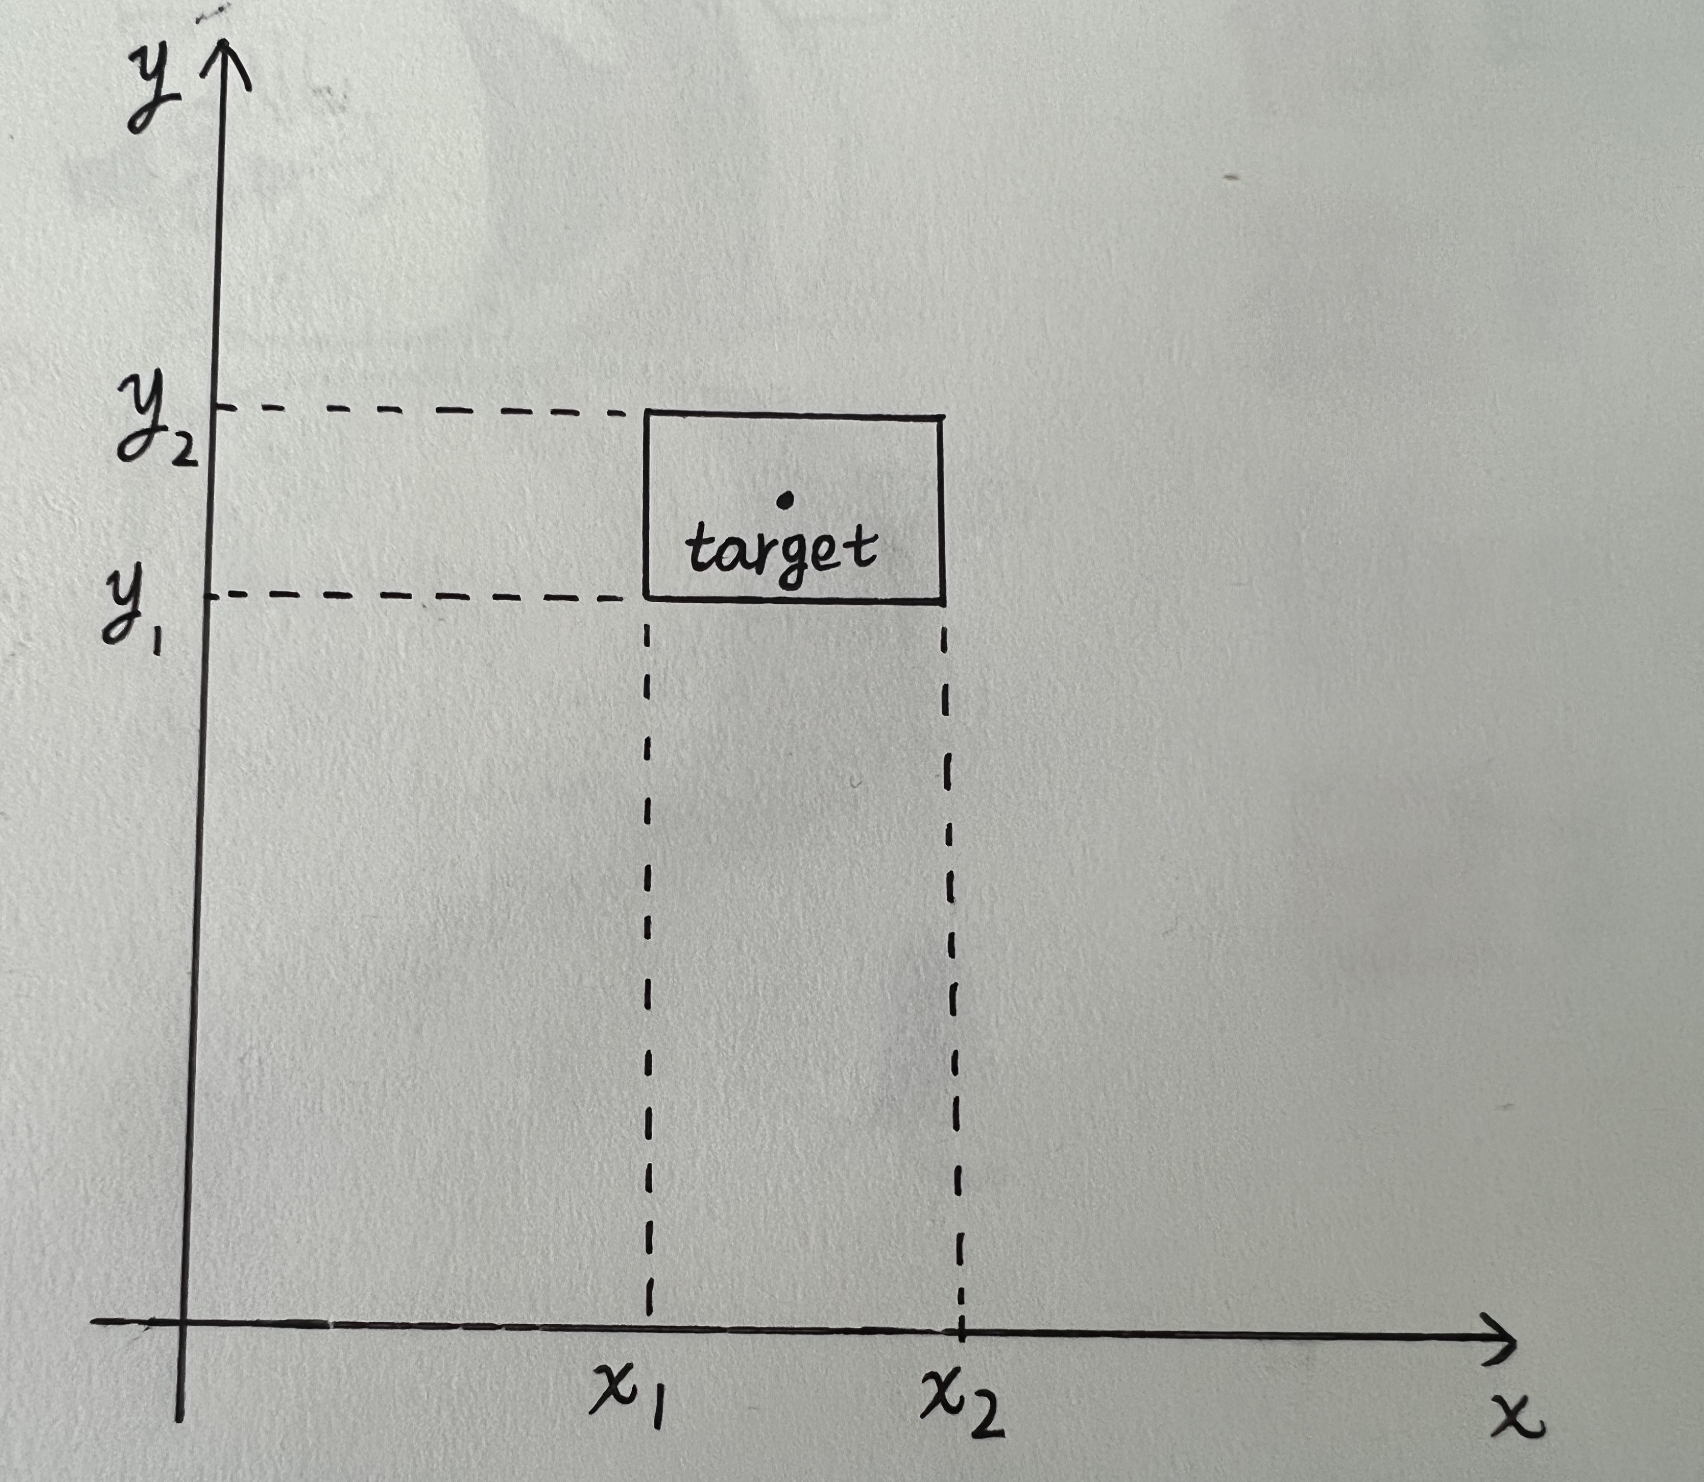 y
y₂
target
y₁
x₁ x₂ x